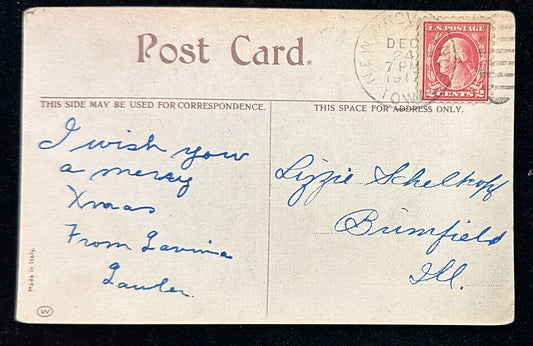 Post Card.
NEW PROV
DEC
24
7 PM
1917
IOWA
U.S. POSTAGE
2 CENTS 2
THIS SIDE MAY BE USED FOR CORRESPONDENCE.
THIS SPACE FOR ADDRESS ONLY.
I wish you
a merry
Xmas
From Lavina
Lauder.
Lizzie Schelkopf
Brimfield
Ill.
Made in Italy.
W